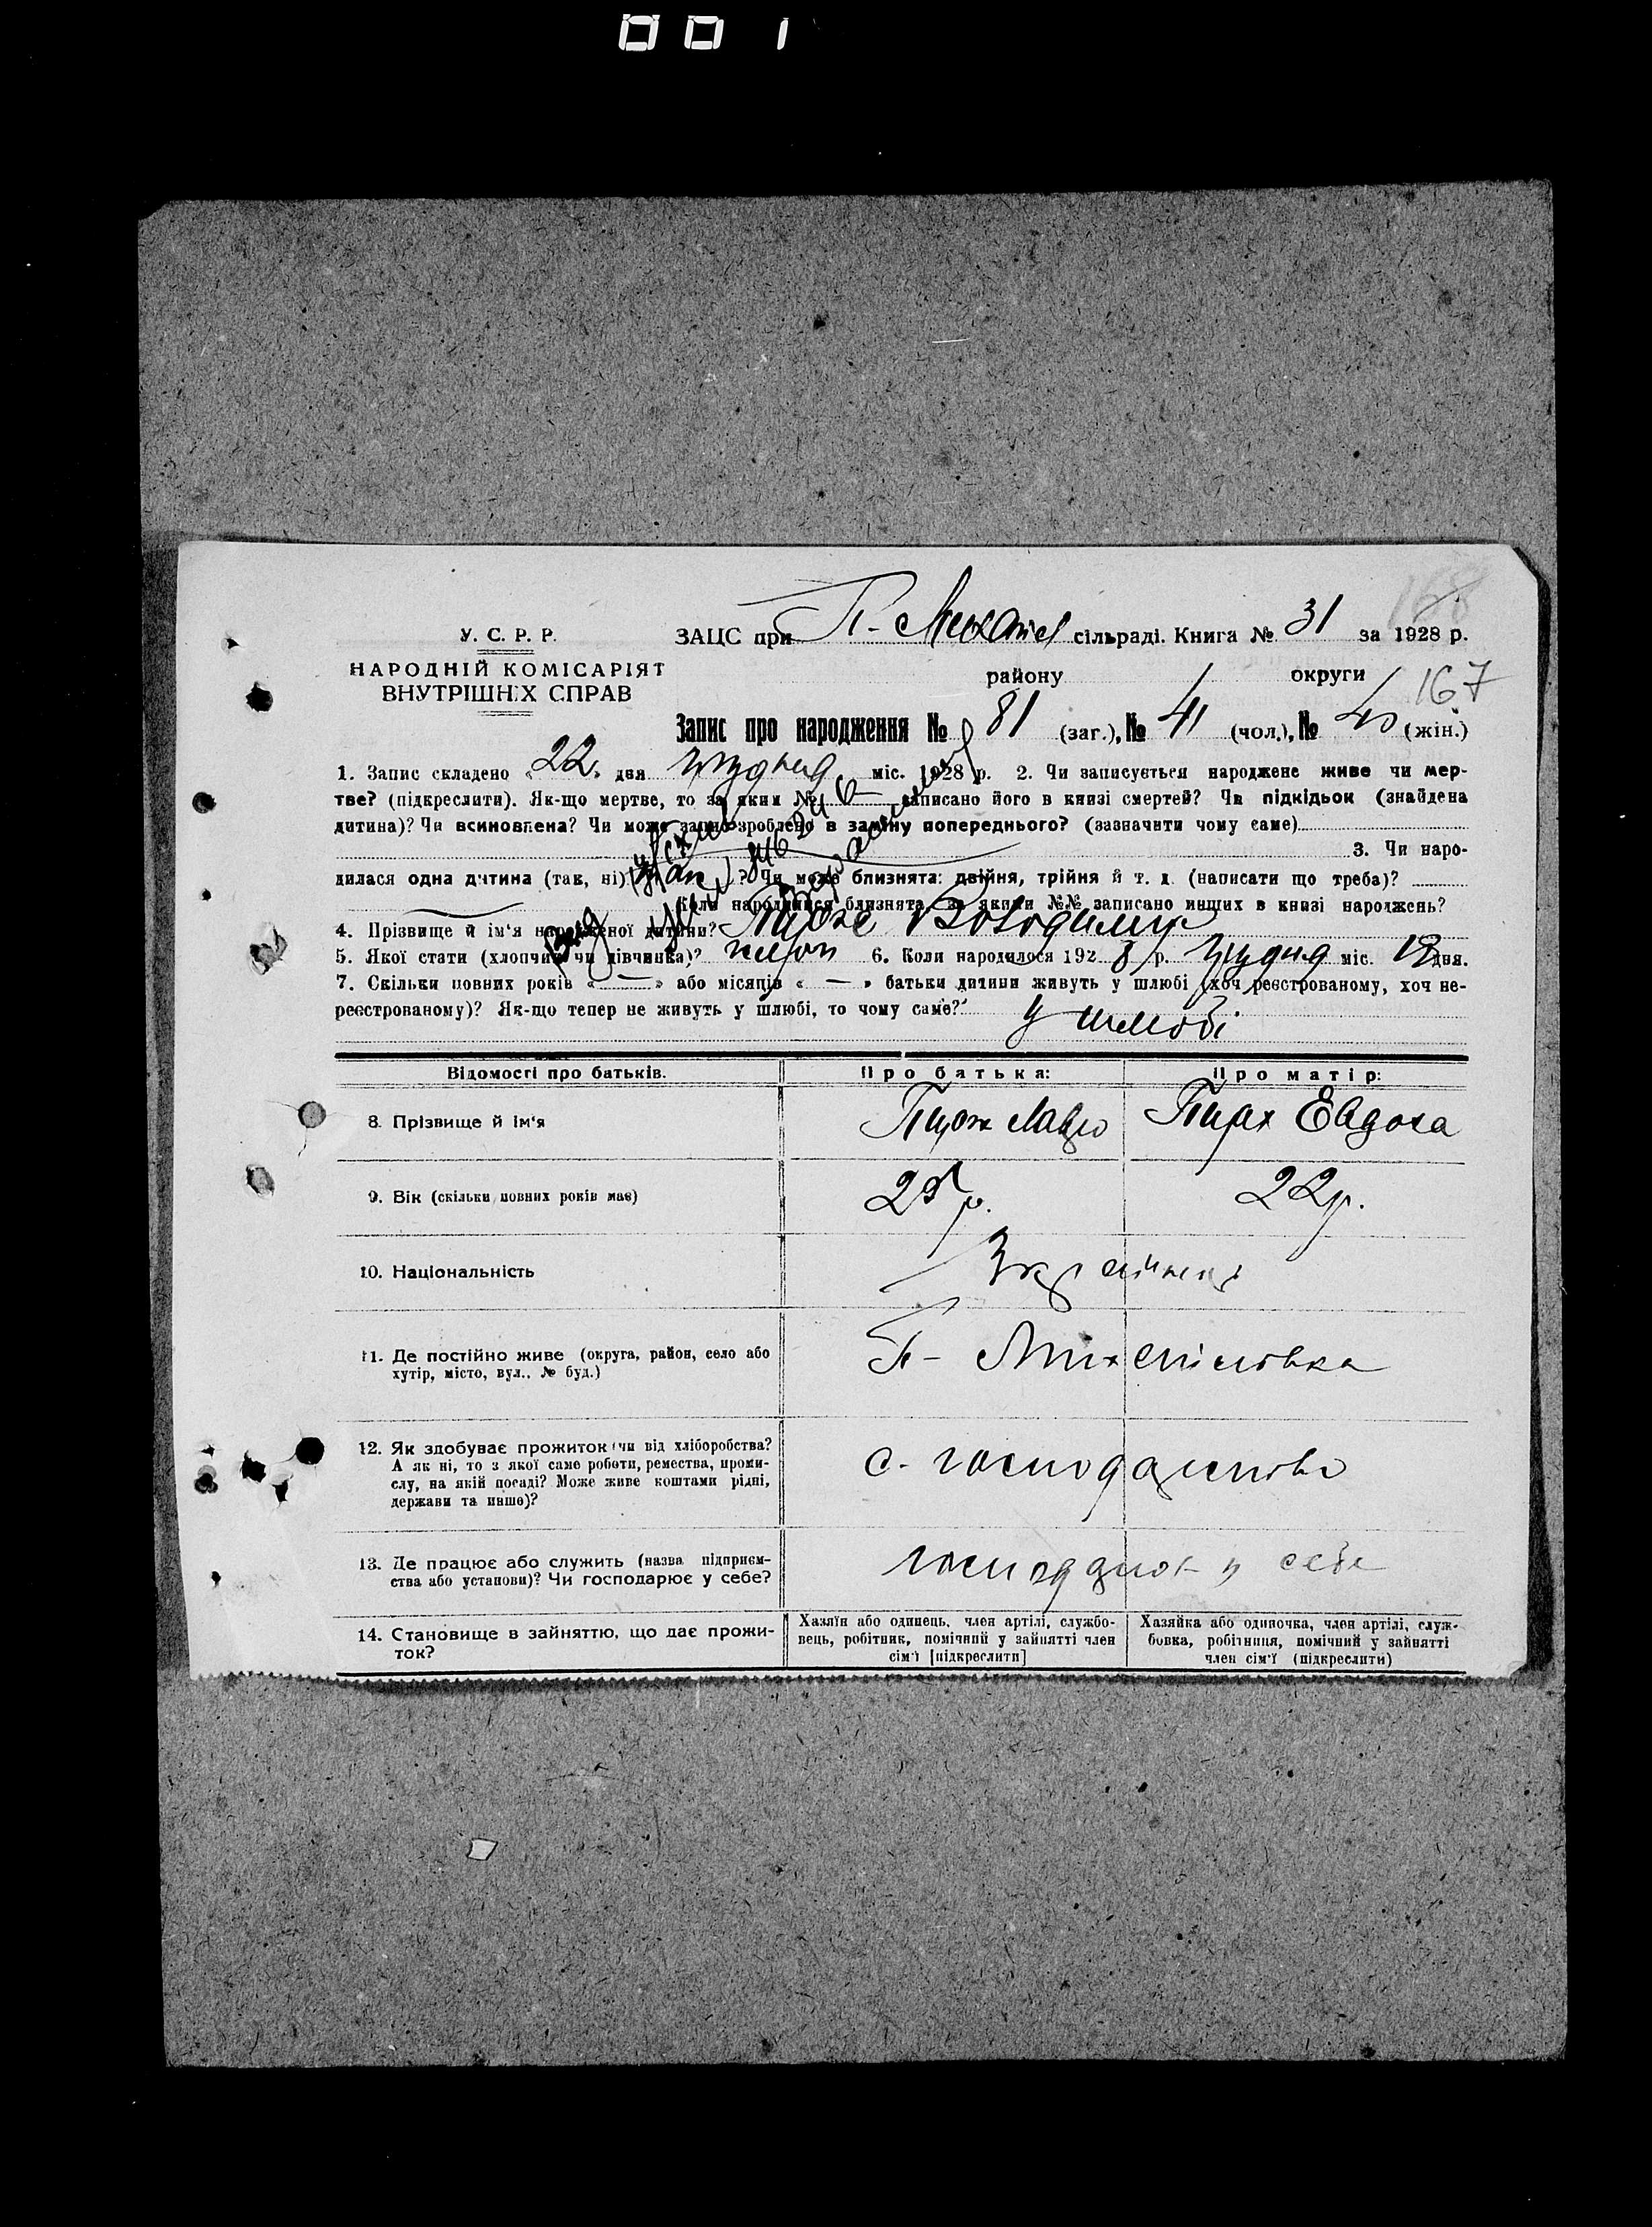 001
168
У. С. Р. Р.
НАРОДНІЙ КОМІСАРІЯТ
ВНУТРІШНІХ СПРАВ
ЗАЦС при П- сільраді. Книга № 31 за 1928 р.
району округи 167
Запис про народження № 81 (заг.), № 41 (чол.), № 40 (жін.)
1. Запис складено «22» дня грудня міс. 1928 р. 2. Чи записується народжене живе чи мер-
тве? (підкреслити). Як-що мертве, то за яким № записано його в книзі смертей? Чи підкідьок (знайдена
дитина)? Чи всиновлена? Чи може запис зроблено в заміну попереднього? (зазначити чому саме)
3. Чи наро-
дилася одна дитина (так, ні) так ? Чи може близнята: двійня, трійня й т. д. (написати що треба)?
Коли народилися близнята, за якими №№ записано инших в книзі народжень?
4. Прізвище й ім'я народженої дитини? Володимир
5. Якої стати (хлопчик чи дівчинка)? хлоп 6. Коли народилося 1928 р. грудня міс. 18 дня.
7. Скільки повних років «—» або місяців «—» батьки дитини живуть у шлюбі (хоч реєстрованому, хоч не-
реєстрованому)? Як-що тепер не живуть у шлюбі, то чому саме? у шлюбі
Відомості про батьків. Про батька: Про матір:
8. Прізвище й ім'я Лавро Евдоха
9. Вік (скільки повних років має) 25 р. 22 р.
10. Національність Українці
11. Де постійно живе (округа, район, село або
хутір, місто, вул., № буд.) П- Михайлівка
12. Як здобуває прожиток (чи від хліборобства?
А як ні, то з якої саме роботи, ремества, проми-
слу, на якій посаді? Може живе коштами рідні,
держави та инше)? с- господарство
13. Де працює або служить (назва підприєм-
ства або установи)? Чи господарює у себе? господарюють у себе
14. Становище в зайняттю, що дає прожи-
ток?
Хазяїн або одинець, член артілі, службо-
вець, робітник, помічний у зайнятті член
сім'ї [підкреслити]
Хазяйка або одиночка, член артілі, служ-
бовка, робітниця, помічний у зайнятті
член сім'ї (підкреслити)